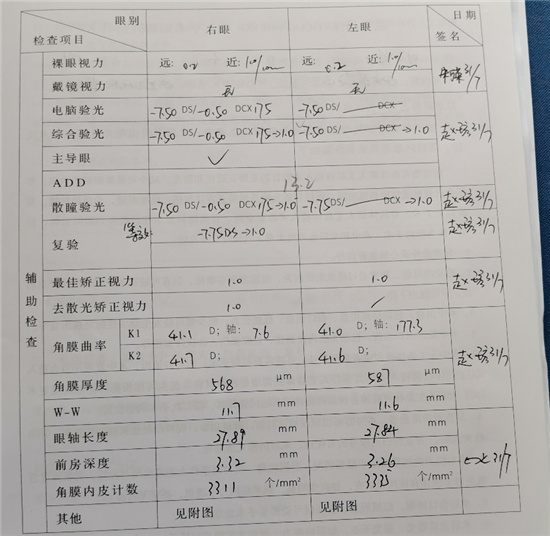 眼别 右眼 左眼 日期
检查项目 签名
裸眼视力 远: 0.2 近: 1.0/ 远: 0.2 近: 1.0/ 31/7
戴镜视力
电脑验光 -7.50 DS/-0.50 DCX 175 -7.50 DS/ DCX
综合验光 -7.50 DS/-0.50 DCX 175→1.0 -7.50 DS/ DCX→1.0 31/7
主导眼 ✓
ADD
散瞳验光 -7.50 DS/-0.50 DCX 175→1.0 -7.75 DS/ DCX→1.0 31/7
复验 -7.75DS→1.0 31/7
辅助检查
最佳矫正视力 1.0 1.0 31/7
去散光矫正视力 1.0 /
角膜曲率 K1 41.1 D; 轴: 7.6 41.0 D; 轴: 177.3
K2 41.7 D; 41.6 D; 31/7
角膜厚度 568 μm 587 μm
W-W 11.7 mm 11.6 mm
眼轴长度 27.89 mm 27.84 mm
前房深度 3.32 mm 3.26 mm 31/7
角膜内皮计数 3311 个/mm² 3335 个/mm²
其他 见附图 见附图